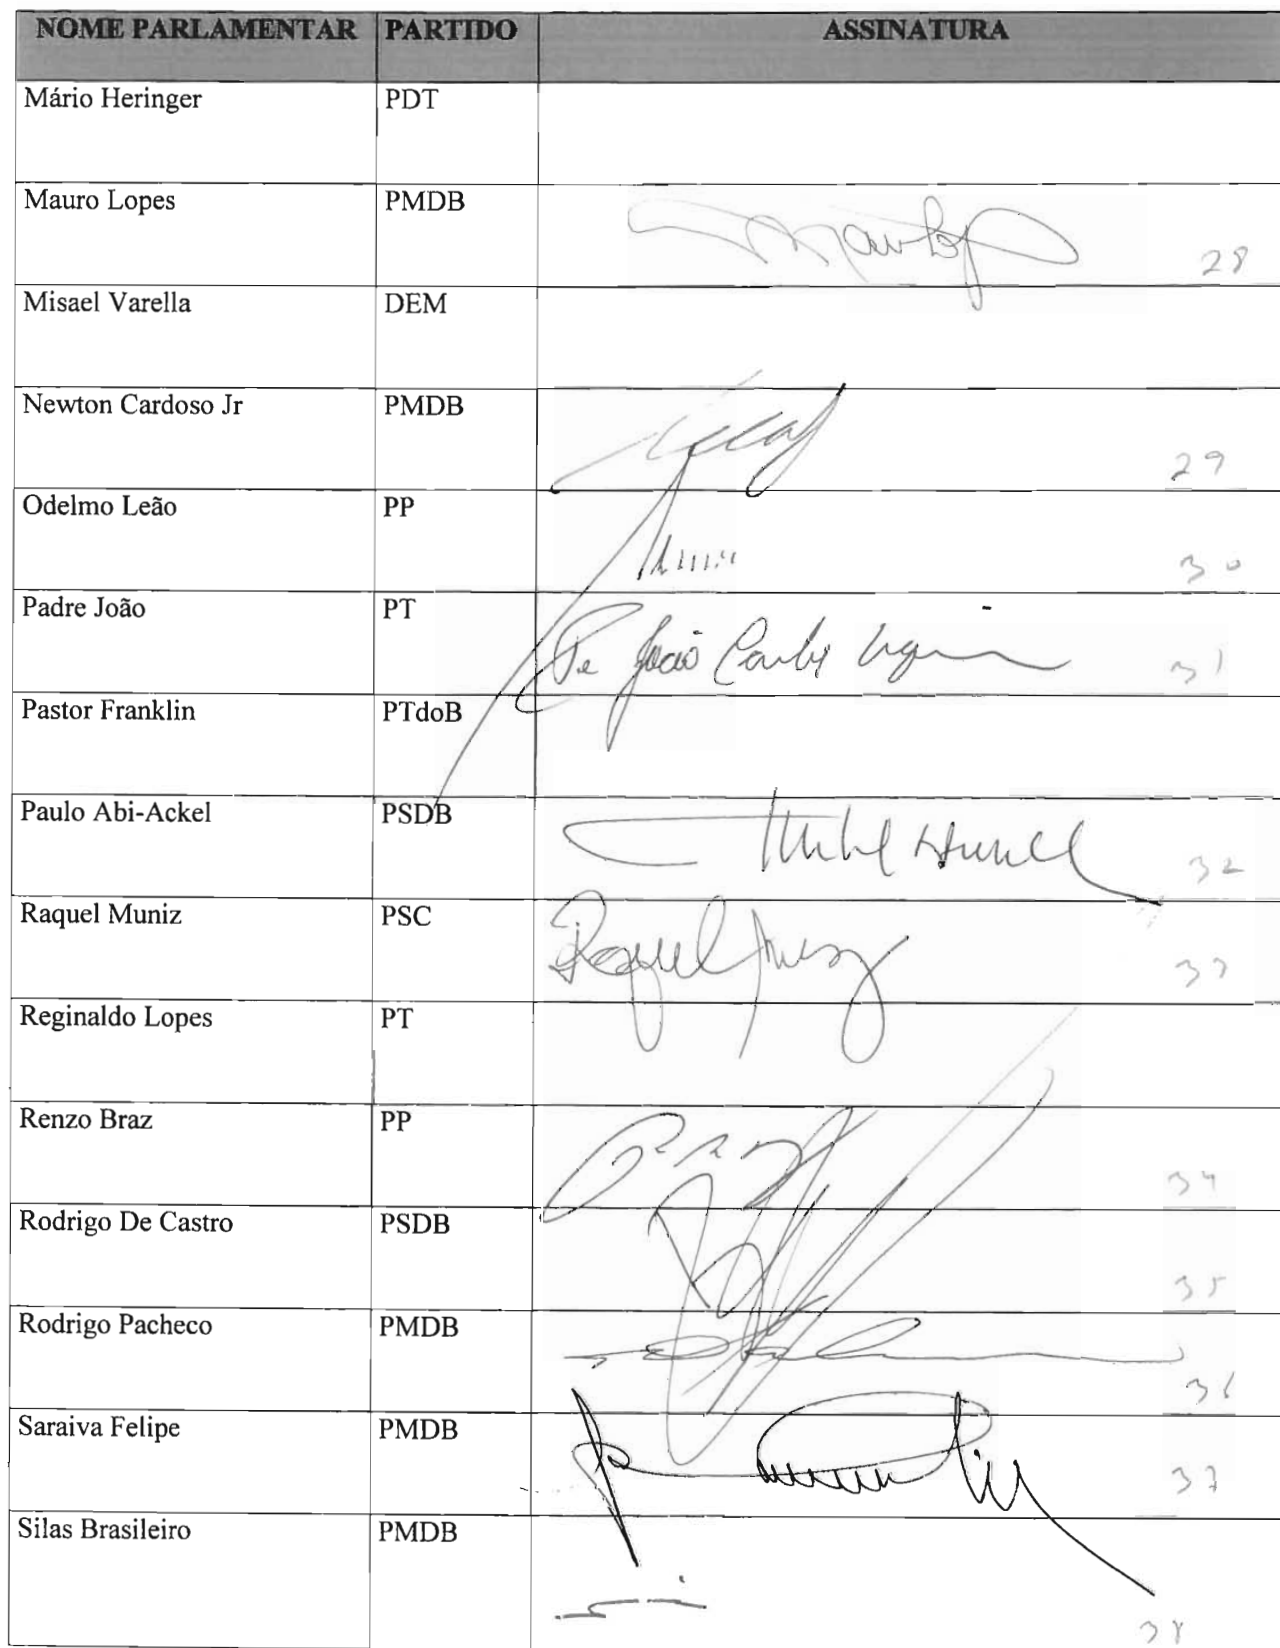 NOME PARLAMENTAR PARTIDO ASSINATURA
Mário Heringer PDT
Mauro Lopes PMDB
28
Misael Varella DEM
Newton Cardoso Jr PMDB
29
Odelmo Leão PP
30
Padre João PT
Pe João Carlos
31
Pastor Franklin PTdoB
Paulo Abi-Ackel PSDB
32
Raquel Muniz PSC
Raquel Muniz
33
Reginaldo Lopes PT
Renzo Braz PP
34
Rodrigo De Castro PSDB
35
Rodrigo Pacheco PMDB
36
Saraiva Felipe PMDB
37
Silas Brasileiro PMDB
38